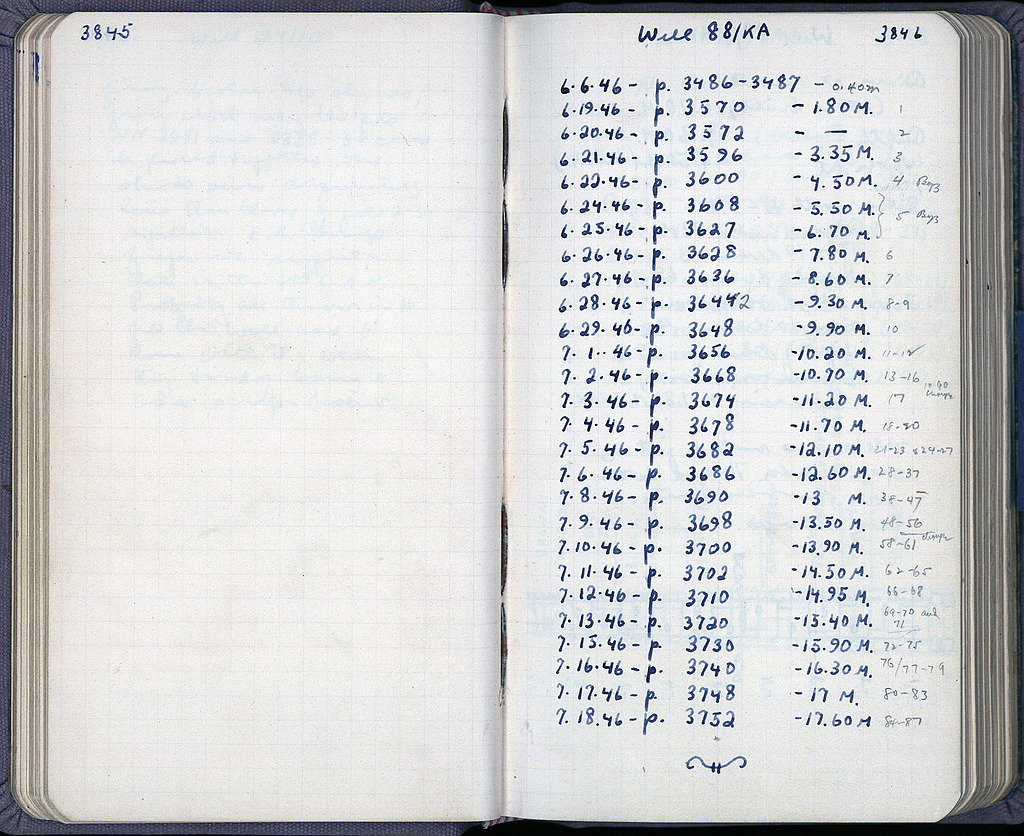 3845
Well 88/KA 3846
6.6.46 - p. 3486-3487 - 0.40m
6.19.46 - p. 3570 - 1.80 M. 1
6.20.46 - p. 3572 — 2
6.21.46 - p. 3596 - 3.35 M. 3
6.22.46 - p. 3600 - 4.50 M. 4 Bags
6.24.46 - p. 3608 - 5.50 M.
6.25.46 - p. 3627 - 6.70 M. 5 Bags
6.26.46 - p. 3628 - 7.80 M. 6
6.27.46 - p. 3636 - 8.60 M. 7
6.28.46 - p. 3642 - 9.30 M. 8-9
6.29.46 - p. 3648 - 9.90 M. 10
7.1.46 - p. 3656 - 10.20 M. 11-12
7.2.46 - p. 3668 - 10.70 M. 13-16
7.3.46 - p. 3674 - 11.20 M. 17
7.4.46 - p. 3678 - 11.70 M. 18-20
7.5.46 - p. 3682 - 12.10 M. 21-23 & 24-27
7.6.46 - p. 3686 - 12.60 M. 28-37
7.8.46 - p. 3690 - 13 M. 38-47
7.9.46 - p. 3698 - 13.50 M. 48-56
7.10.46 - p. 3700 - 13.90 M. 58-61
7.11.46 - p. 3702 - 14.50 M. 62-65
7.12.46 - p. 3710 - 14.95 M. 66-68
7.13.46 - p. 3720 - 15.40 M. 69-70 and 71
7.15.46 - p. 3730 - 15.90 M. 72-75
7.16.46 - p. 3740 - 16.30 M. 76/77-79
7.17.46 - p. 3748 - 17 M. 80-83
7.18.46 - p. 3752 - 17.60 M 84-87